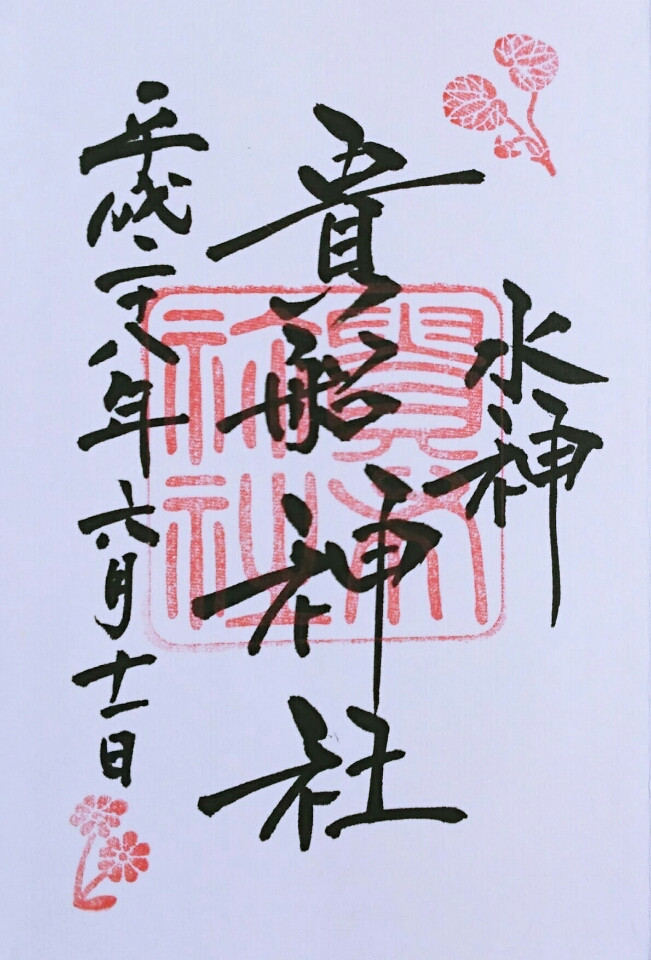 水神
貴船神社
平成二十八年六月十一日